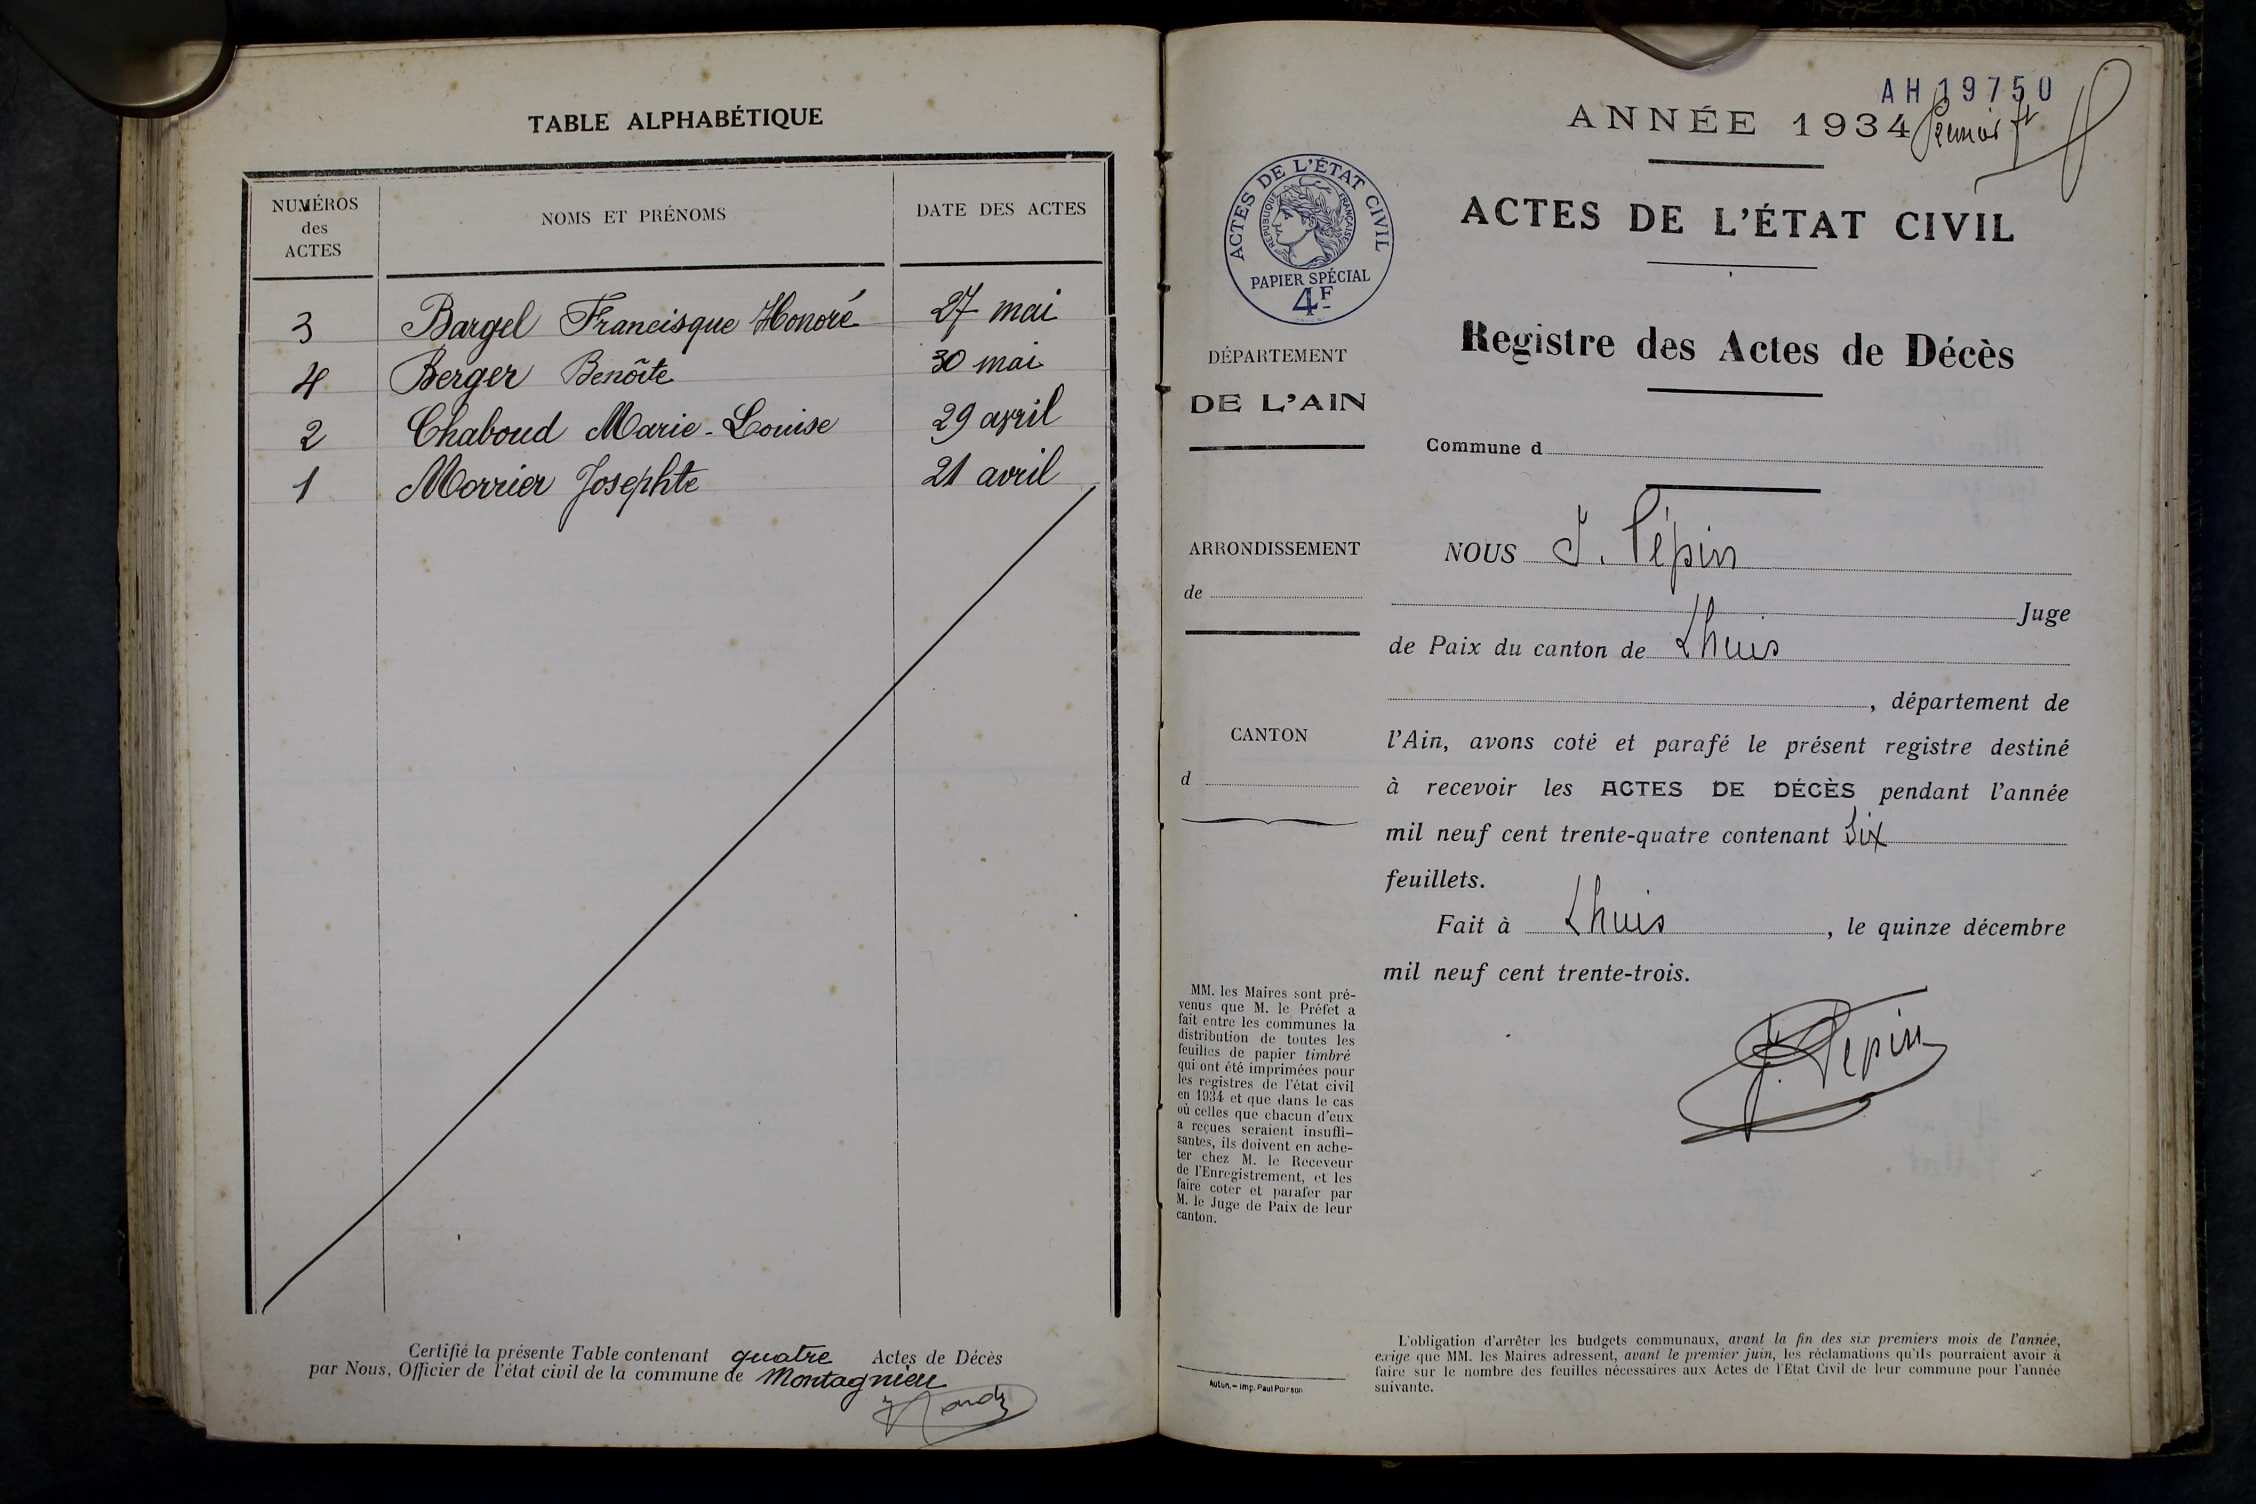 TABLE ALPHABÉTIQUE
NUMÉROS
des
ACTES
NOMS ET PRÉNOMS
DATE DES ACTES
3 Bargel Francisque Honoré 27 mai
4 Berger Benôite 30 mai
2 Chaboud Marie-Louise 29 avril
1 Morrier Josephte 21 avril
Certifié la présente Table contenant quatre Actes de Décès
par Nous, Officier de l'état civil de la commune de Montagnieu
AH 19750
ANNÉE 1934 Premier ft
ACTES DE L'ÉTAT CIVIL
RÉPUBLIQUE FRANÇAISE
PAPIER SPÉCIAL
4F
ACTES DE L'ÉTAT CIVIL
Registre des Actes de Décès
DÉPARTEMENT
DE L'AIN
Commune d
ARRONDISSEMENT
de
CANTON
d
NOUS J. Pépin
Juge
de Paix du canton de Lhuis
, département de
l'Ain, avons coté et parafé le présent registre destiné
à recevoir les ACTES DE DÉCÈS pendant l'année
mil neuf cent trente-quatre contenant Six
feuillets.
Fait à Lhuis, le quinze décembre
mil neuf cent trente-trois.
J. Pepin
MM. les Maires sont pré-
venus que M. le Préfet a
fait entre les communes la
distribution de toutes les
feuilles de papier timbré
qui ont été imprimées pour
les registres de l'état civil
en 1934 et que dans le cas
où celles que chacun d'eux
a reçues seraient insuffi-
santes, ils doivent en ache-
ter chez M. le Receveur
de l'Enregistrement, et les
faire coter et parafer par
M. le Juge de Paix de leur
canton.
Autun. – Imp. Paul Poirson
L'obligation d'arrêter les budgets communaux, avant la fin des six premiers mois de l'année,
exige que MM. les Maires adressent, avant le premier juin, les réclamations qu'ils pourraient avoir à
faire sur le nombre des feuilles nécessaires aux Actes de l'Etat Civil de leur commune pour l'année
suivante.